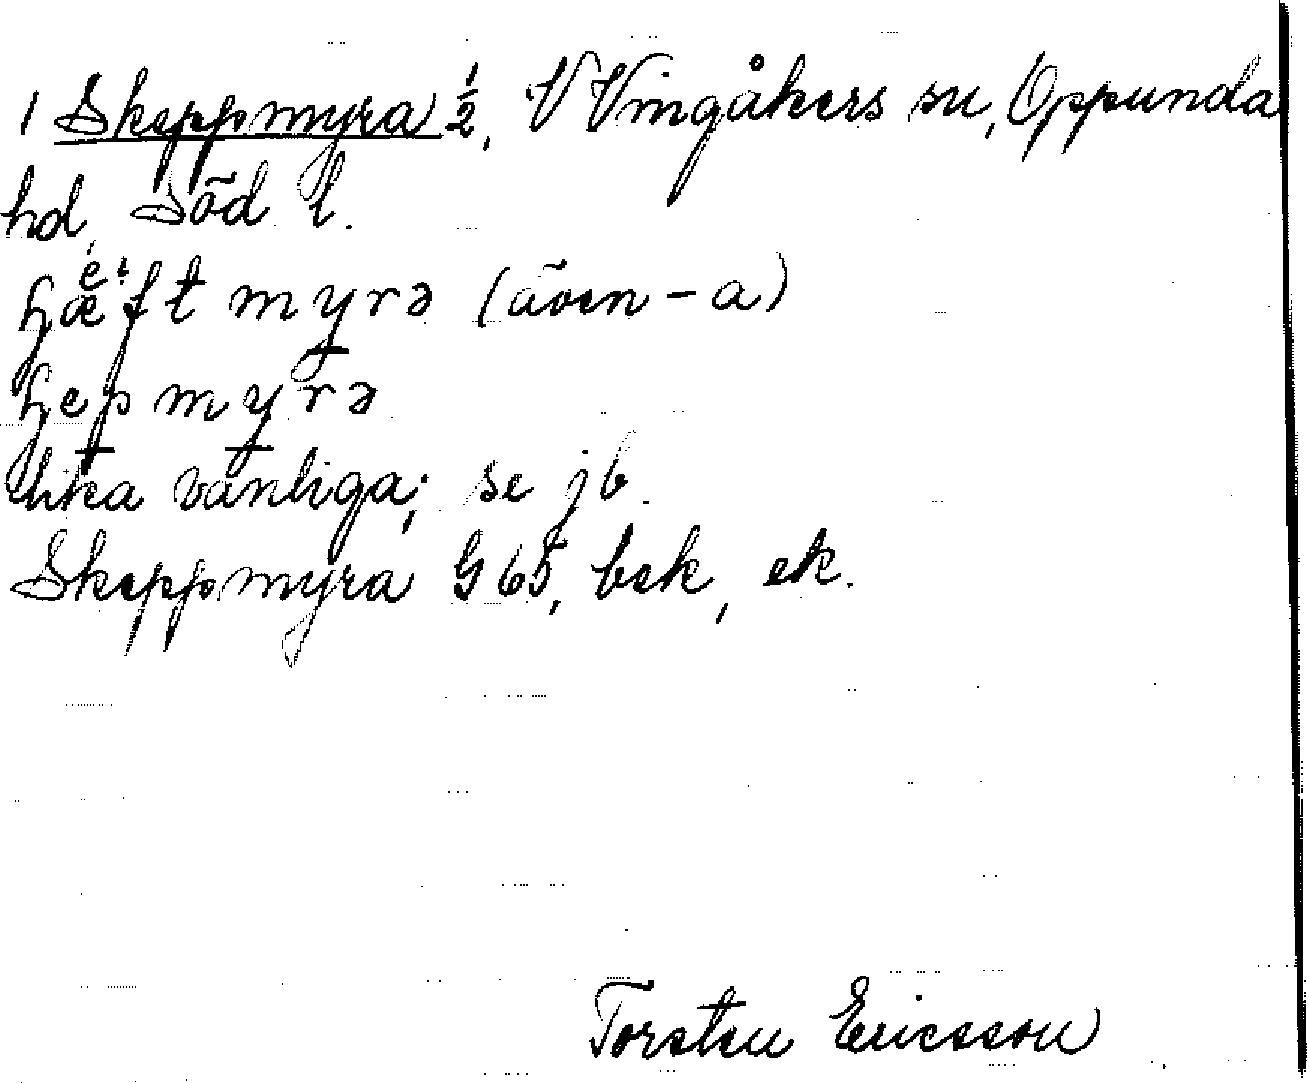 1 Skeppmyra ½, V Vingåkers sn, Oppunda
hd, Söd l.
myrə (även -a)
myrə
lika vanliga; se jb.
Skeppmyra G 65, bek, ek.
Torsten Ericsson